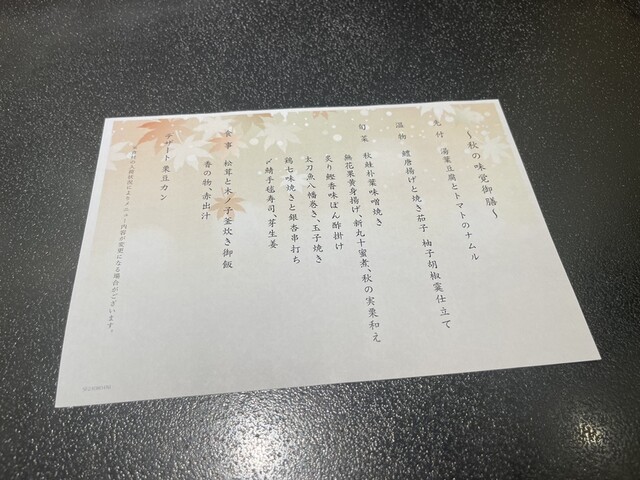 ～秋の味覚御膳～
先付 湯葉豆腐とトマトのナムル
温物 鱧唐揚げと焼き茄子 柚子胡椒霙仕立て
旬菜 秋鮭朴葉味噌焼き
無花果黄身揚げ、新丸十蜜煮、秋の実栗和え
炙り鰹香味ぽん酢掛け
太刀魚八幡巻き、玉子焼き
鶏七味焼きと銀杏串打ち
〆鯖手毬寿司、芽生姜
食事 松茸と木ノ子釜炊き御飯
香の物、赤出汁
デザート 栗豆カン
※食材の入荷状況によりメニュー内容が変更になる場合がございます。